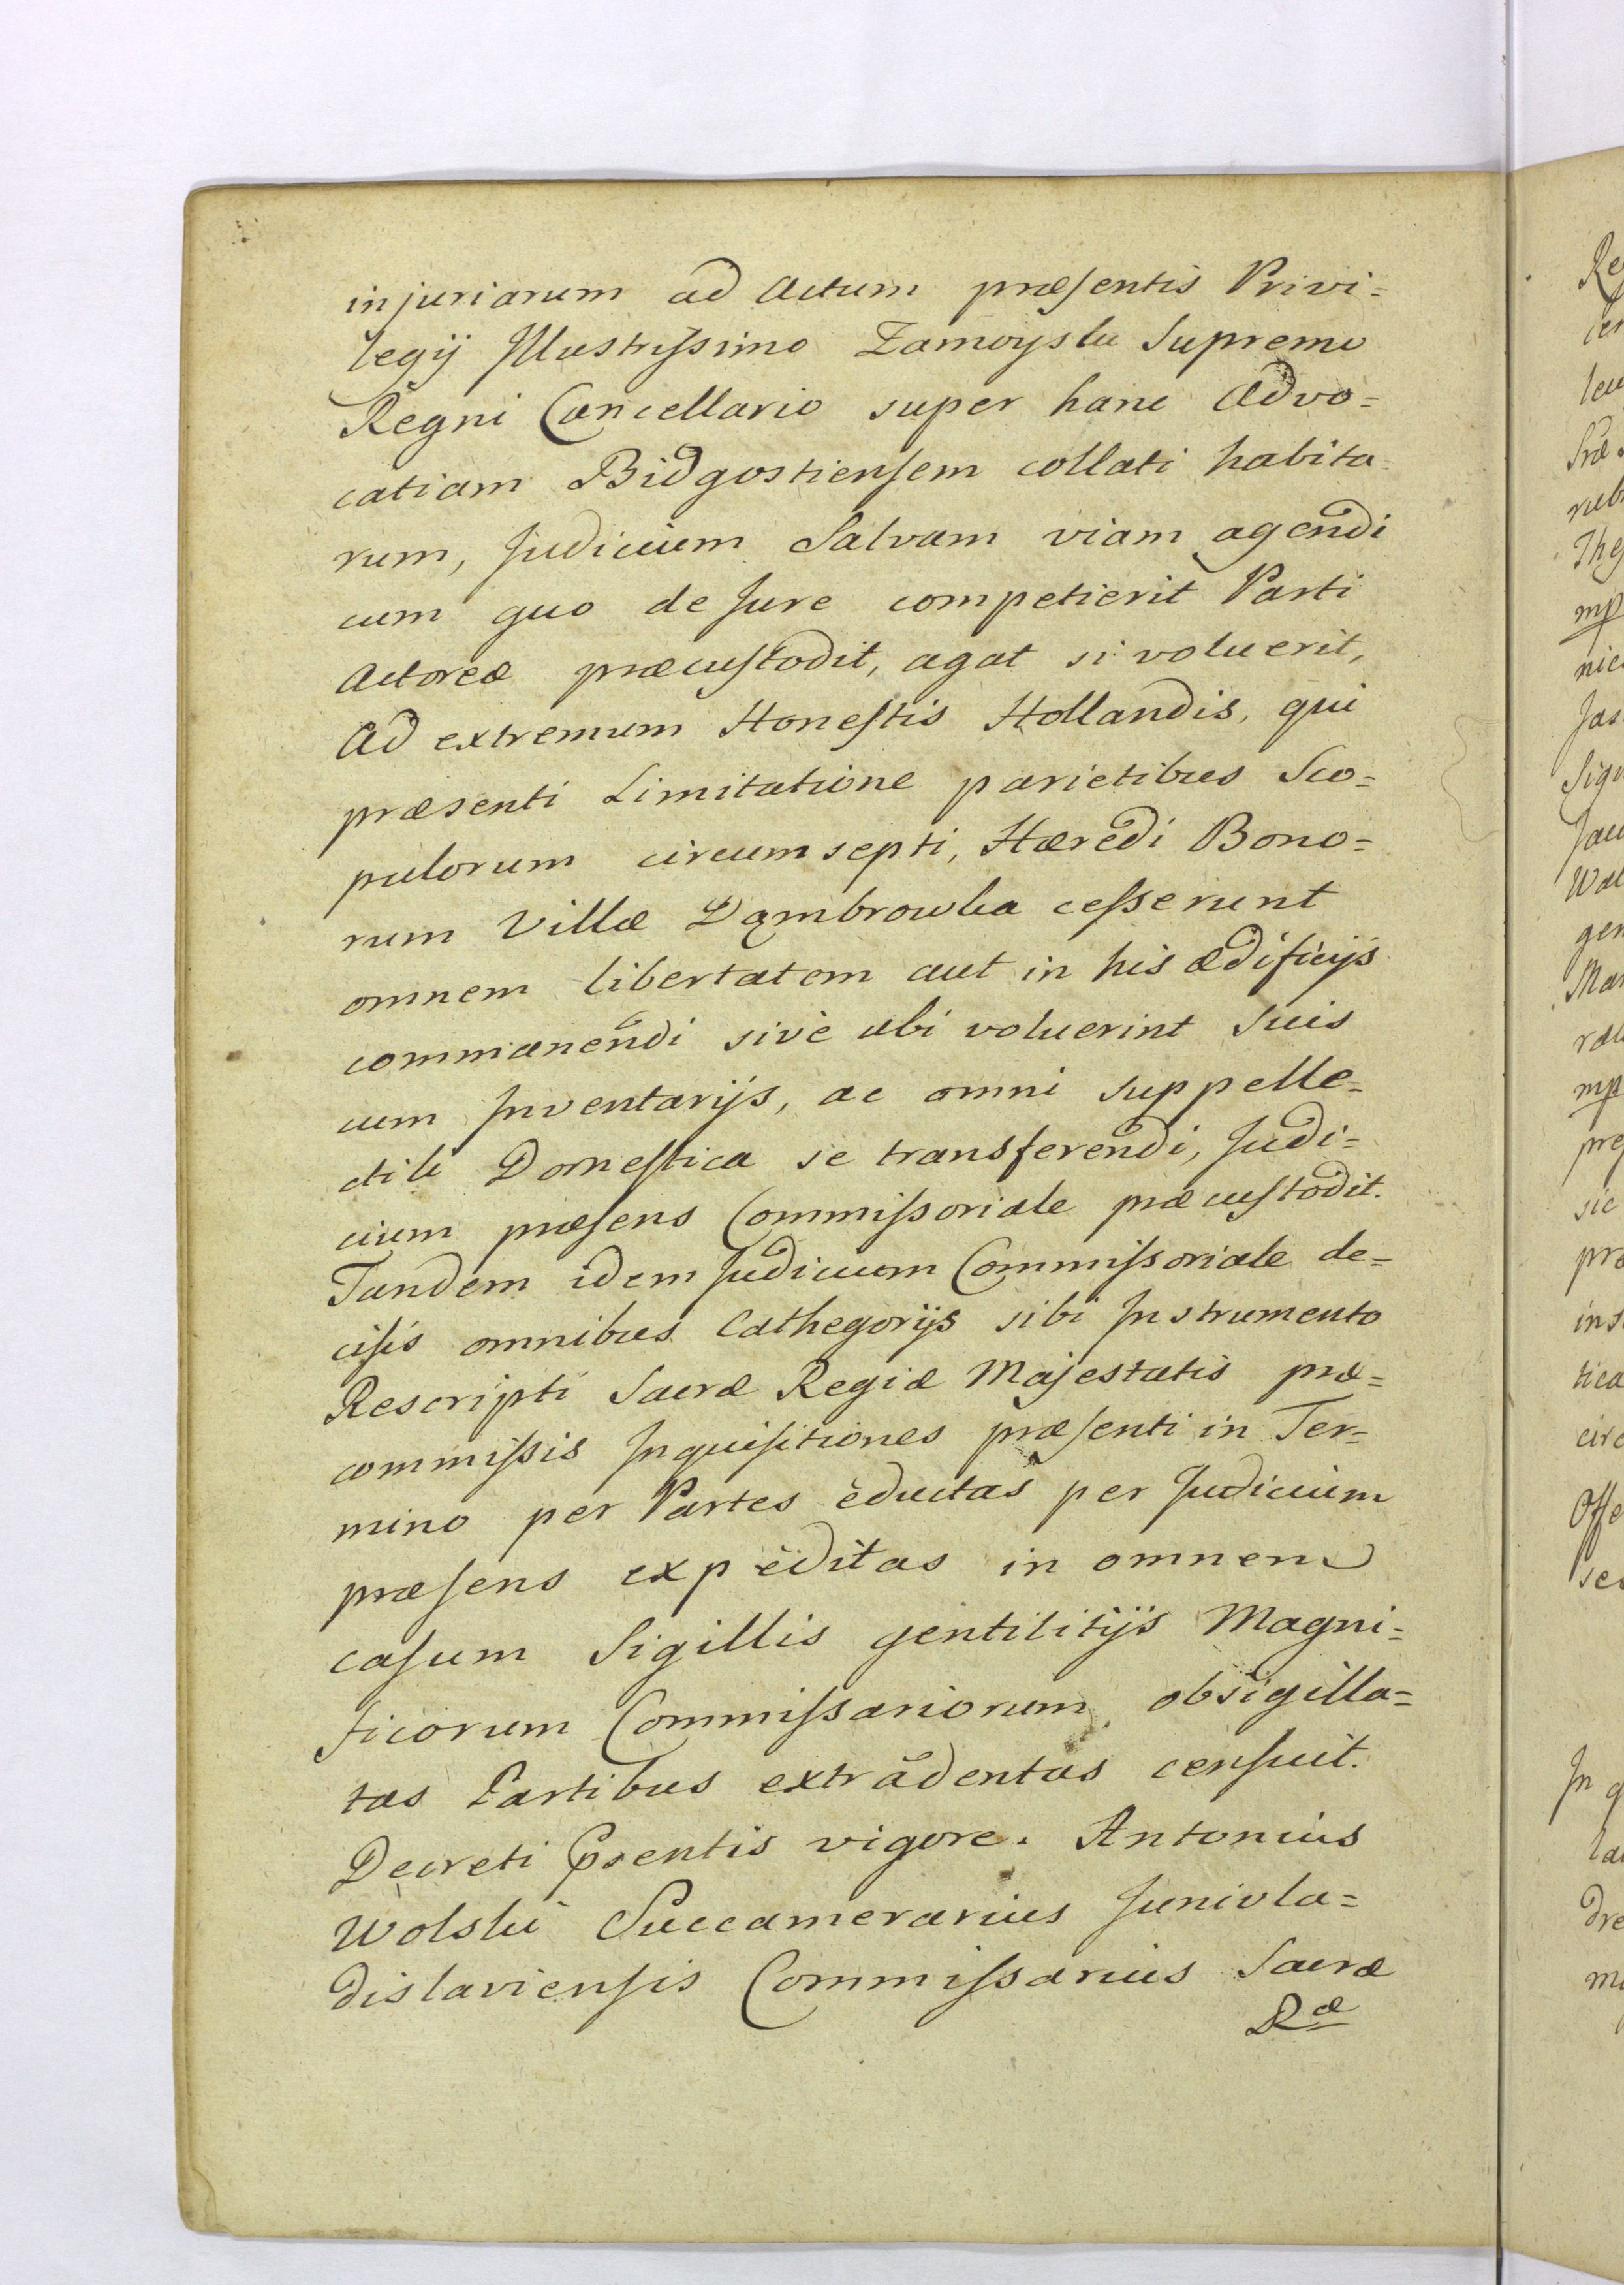 injuriarum ad Actum præsentis Privi=
legij Illustrissimo Zamoyski Supremo
Regni Cancellario super hanc Advo=
catiam Bidgostiensem collati habita
rum, Judicium Salvam viam agendi
cum quo de Jure competierit Parti
Actoreæ præcustodit, agat si voluerit,
Ad extremum Honestis Hollandis, qui
præsenti Limitatione parietibus Sco=
pulorum circumsepti, Hæredi Bono=
rum Villæ Dąmbrowka cesserunt
omnem libertatem aut in his ædificijs
commanendi sivè ubi voluerint Suis
cum Inventarijs, ac omni suppelle=
ctili Domestica se transferendi, Judi=
cium præsens Commissoriale præcustodit.
Tandem idem Judicium Commissoriale de=
cisis omnibus Cathegorijs sibi Instrumento
Rescripti Sacræ Regiæ Majestatis præ=
commissis Inquisitiones præsenti in Ter=
mino per Partes eductas per Judicium
præsens expeditas in omnem
casum Sigillis gentilitijs Magni=
ficorum Commissariorum obsigilla=
tas Partibus extradentas censuit.
Decreti psentis vigore. Antonius
Wolski Succamerarius Junivla=
dislaviensis Commissarius Sacræ
Ræ